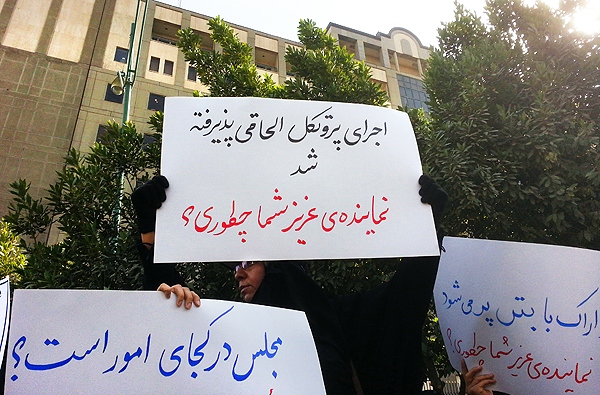 اجرای پروتکل الحاقی پذیرفته
شد
نماینده‌ی عزیز شما چطوری؟
مجلس در کجای امور است؟
اراک با بتن پر می شود
نماینده‌ی عزیز شما چطوری؟